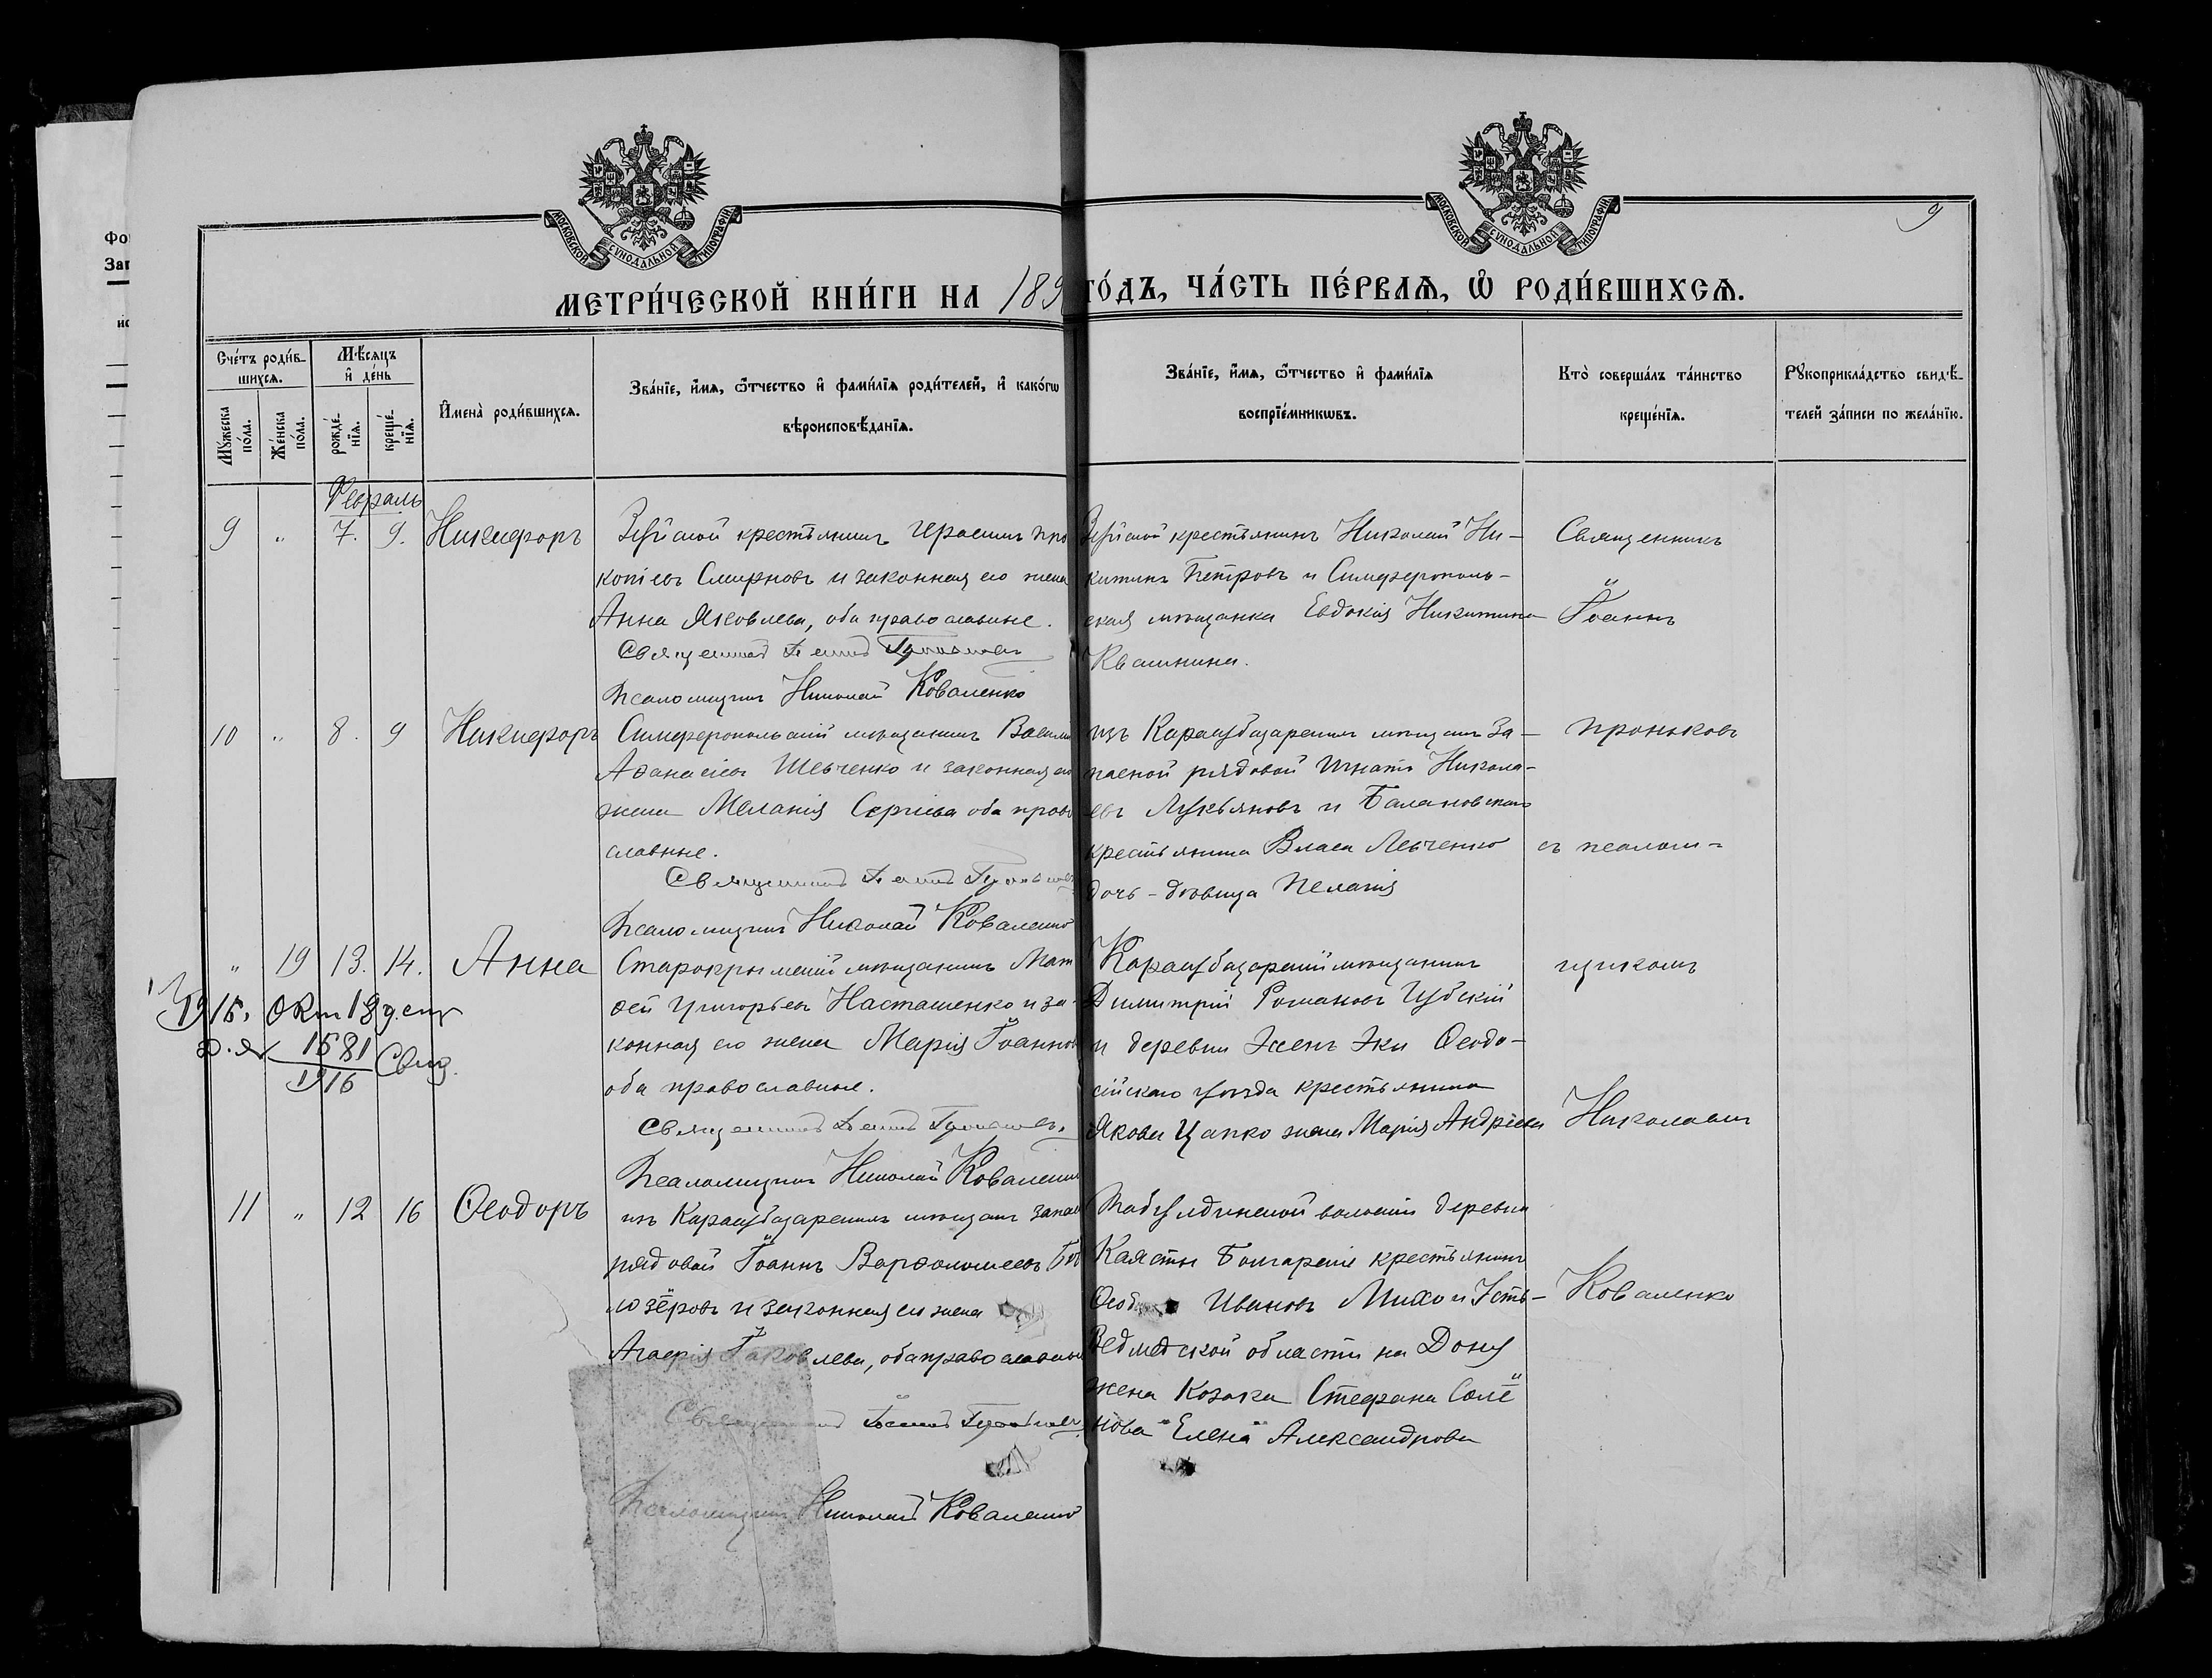 МОСКОВСКОЙ СУНОДАЛЬНОЙ ТИПОГРАФІИ
МОСКОВСКОЙ СУНОДАЛЬНОЙ ТИПОГРАФІИ
9
МЕТРИ́ЧЕСКОЙ КНИ́ГИ НА 189 ГО́ДЪ, ЧА́СТЬ ПЕ́РВАѦ, Ѡ҆ РОДИ́ВШИХСѦ.
Сче́тъ роди́в-
шихсѧ.
Мѣ́сѧцъ
и҆ де́нь
Мꙋ́жеска по́ла.
Же́нска по́ла.
рожде́-нїѧ.
креще́-нїѧ.
И҆мена̀ роди́вшихсѧ.
Зва́нїе, и҆́мѧ, ѻ҆́тчество и҆ фами́лїѧ роди́телей, и҆ како́гѡ
вѣроисповѣ́данїѧ.
Зва́нїе, и҆́мѧ, ѻ҆́тчество и҆ фами́лїѧ
воспрїе́мникѡвъ.
Кто̀ соверша́лъ та́инство
креще́нїѧ.
Рꙋкоприкла́дство свидѣ́-
телей за́писи по жела́нїю.
Февраль
9 " 7. 9. Никифоръ
крестьянинъ Герасимъ Про
копіевъ Смирновъ и законная его жена
Анна Яковлева, оба православные.
Священникъ Іоаннъ Проньковъ
Псаломщикъ Николай Коваленко
крестьянинъ Николай Ни-
китинъ Петровъ и Симферополь-
ская мѣщанка Евдокія Никитина
Квашнина.
Священникъ
Іоаннъ
10 " 8. 9 Никифоръ
Симферопольскій мѣщанинъ Василій
Аѳанасіевъ Шевченко и законная его
жена Меланія Сергіева оба право
славные.
Священникъ Іоаннъ Проньковъ
Псаломщикъ Николай Коваленко
изъ Карасубазарскихъ мѣщанъ за-
пасной рядовой Игнатъ Никола-
евъ Лукьяновъ и Балановскаго
крестьянина Власа Левченко
дочь-дѣвица Пелагія
Проньковъ
съ псалом-
" 19 13. 14. Анна
Старокрымскій мѣщанинъ Мат
ѳей Григорьевъ Насташенко и за-
конная его жена Марія Іоаннов
оба православные.
Священникъ Іоаннъ Проньковъ.
Псаломщикъ Николай Коваленко
Карасубазарскій мѣщанинъ
Димитрій Романовъ Губскій
и деревни Эсенъ Эки Ѳеодо-
сійскаго уѣзда крестьянина
Якова Цапко жена Марія Андреева
щикомъ
Николаемъ
1915, Окт 18
1581
1916
11 " 12 16 Ѳеодоръ
изъ Карасубазарскихъ мѣщанъ запас
рядовой Іоаннъ Варѳоломеевъ Бѣ
лозёровъ и законная его жена
Агафія Іаковлева, оба православные
Священникъ Іоаннъ Проньковъ
Псаломщикъ Николай Коваленко
Табулдинской волости деревни
Каясты Болгарскіе крестьянинъ
Ѳеод Ивановъ Михо и Усть-
Ведмедской области на Дону
жена Козака Стефана Солё
нова Елена Александрова
Коваленко